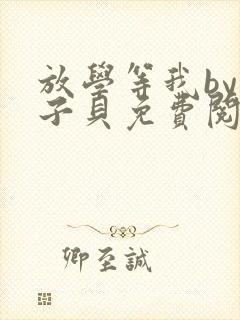 放學等我by
子貝免費閱
卿至誠